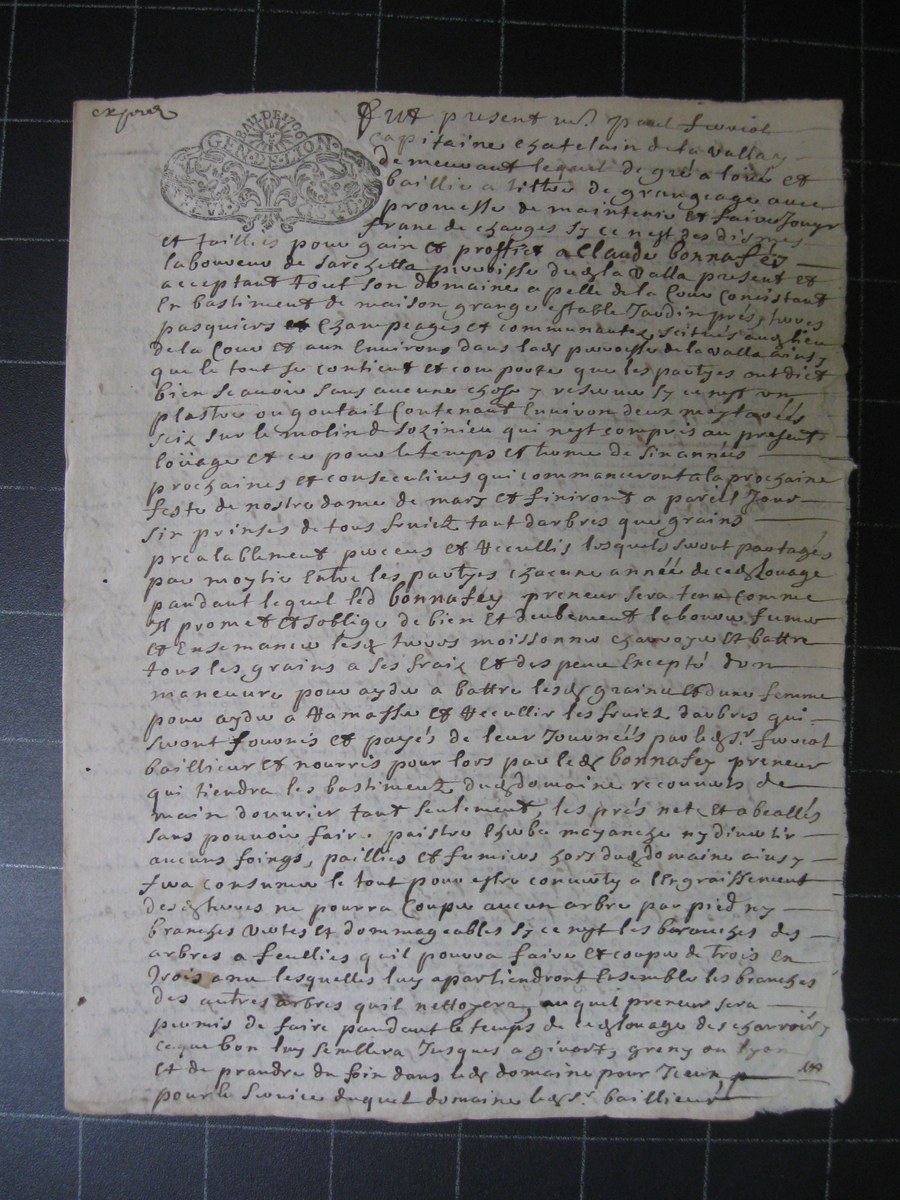 BAIL DE 1706
GEN. DE LYON
Fut present mr. paul
capitaine chatelain de la valla y
demeurant lequel de gré a loüé et
baillié a tiltre de grangeage avec
promesse de maintenir et faire Jouyr
franc de charges sy ce n'est des dismes
et tailles pour gain et proffict a Claude bonnafey
laboureur de parroisse dud la valla present et
acceptant tout son domaine apellé de la Cour Consistant
En bastiment de maison grange estable Jardin prés, terres
pasquiers et champeages et communautez scitués aud lieu
de la Cour et aux Environs dans lad parroisse de la valla ainsy
que le tout se contient et comporte que les partyes ont dict
bien scavoir sans aucune chose y reserver sy ce n'est un
plastre ou Contenant Environ deux
scis sur le molin de qui n'est compris au present
loüage et ce pour le temps et terme de six années
prochaines et consecutives qui commanceront a la prochaine
feste de nostre dame de mars et finiront a pareil Jour
six prinses de tous fruictz tant darbres que grains
prealablement perceus et recullis lesquels seront partagés
par moytié Entre les partyes chacune année de ced loüage
pandant lequel led bonnafey preneur sera tenu comme
Il promet et soblige de bien et deubement labourer fumer
et Ensemancer lesd terres moissonner charroyer et battre
tous les grains a ses fraix et despens Excepté dun
maneuvre pour ayder a battre lesd grains et dune femme
pour ayder a ramasser et recullir les fruictz darbres qui
seront fournis et payés de leur Journeés par led sr.
baillieur et nourris pour lors par led bonnafey preneur
qui tiendra les bastimentz dud domaine recouverts de
main douvrier tant seulement, les prés netz et abeallés
sans pouvoir faire paistre lherbe mayanche ny divertir
aucuns foings, pailles et fumiers hors dud domaine ainsy
fera consumer le tout pour estre converty a lEngraissement
desd terres ne pourra Couper aucun arbre par pied ny
branches vertes et dommageables sy ce n'est les branches des
arbres a feullies quil pourra faire et couper de trois en
trois ans lesquelles luy apartiendront Ensemble les branches
des autres arbres quil nettoyera, auquel preneur sera
permis de faire pandant le temps de ced loüage des charroirs,
ce que bon luy semblera Jusques a givort, greny ou lyon
et de prandre du foin dans led domaine pour Iceux,
pour le service duquel domaine led sr. baillieur